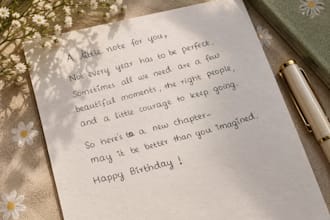 A little note for you,
Not every year has to be perfect.
Sometimes all we need are a few
beautiful moments, the right people,
and a little courage to keep going.
So here's to a new chapter—
may it be better than you imagined.
Happy Birthday!